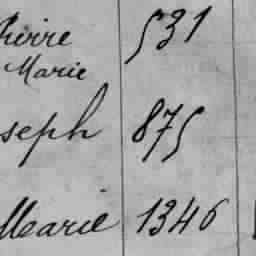 Pierre 531
Marie
seph 875
Marie 1346